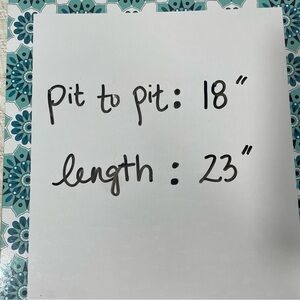 pit to pit: 18"
length : 23"